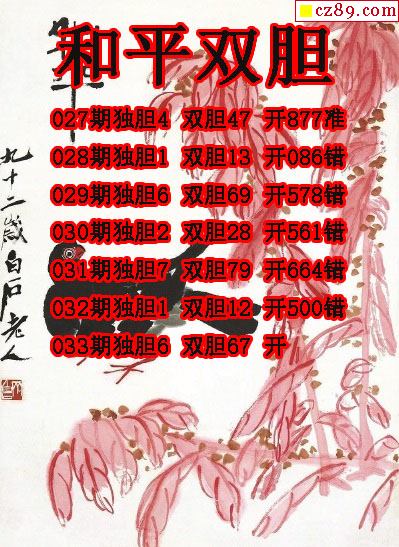 cz89.com
和平双胆
027期独胆4 双胆47 开877准
028期独胆1 双胆13 开086错
029期独胆6 双胆69 开578错
030期独胆2 双胆28 开561错
031期独胆7 双胆79 开664错
032期独胆1 双胆12 开500错
033期独胆6 双胆67 开
九十二岁白石老人